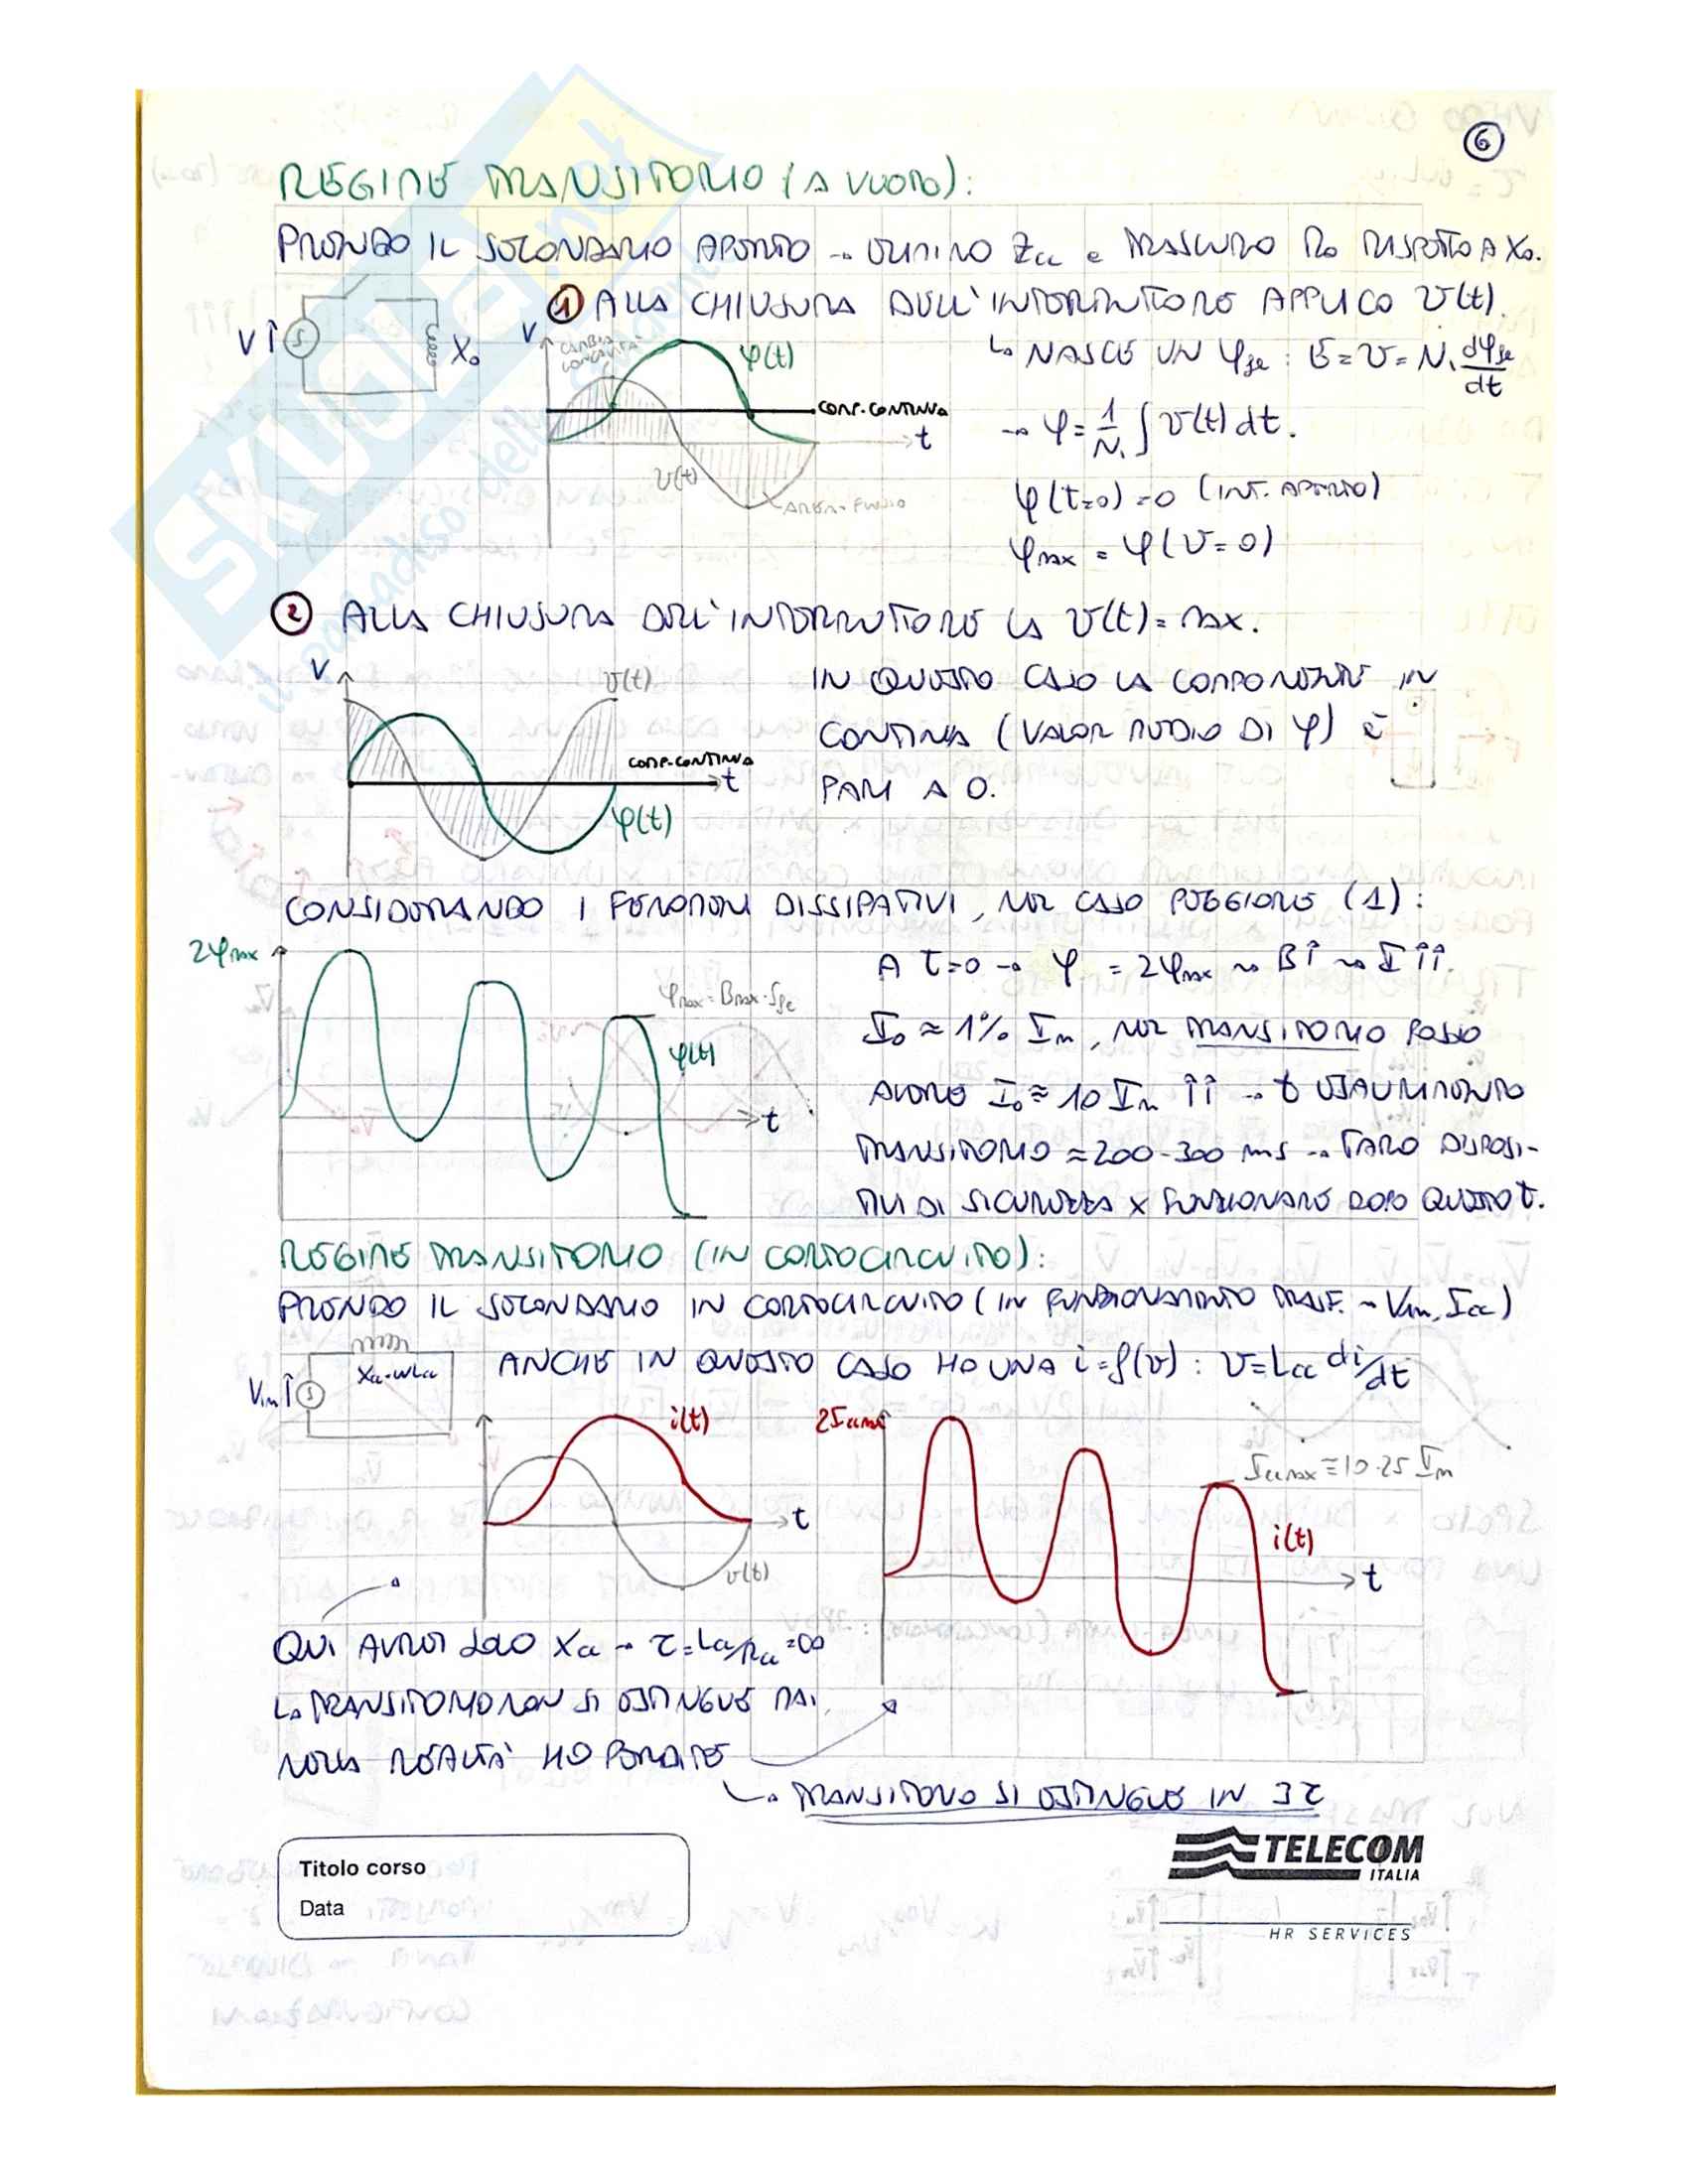 6
REGIME TRANSITORIO (A VUOTO):
PRENDO IL SECONDARIO APERTO → ELIMINO Zcc e TRASCURO Ro RISPETTO A Xo.
V Xo
① ALLA CHIUSURA DELL'INTERRUTTORE APPLICO v(t).
↳ NASCE UN φfe : E = v = N₁ dφfe/dt
V CAMBIA CONCAVITA' φ(t)
COMP. CONTINUA
t
v(t)
AREA = FLUSSO
→ φ = 1/N₁ ∫ v(t) dt.
φ(t=0) = 0 (INT. APERTO)
φmax = φ(v=0)
② ALLA CHIUSURA DELL'INTERRUTTORE LA v(t) = MAX.
V v(t)
COMP. CONTINUA
t
φ(t)
IN QUESTO CASO LA COMPONENTE IN
CONTINUA (VALOR MEDIO DI φ) È
PARI A 0.
CONSIDERANDO I FENOMENI DISSIPATIVI, NEL CASO PEGGIORE (1):
2φmax
φmax = Bmax · Sfe
φ(t)
t
A t=0 → φ = 2φmax → B↑ → I↑↑.
I₀ ≈ 1% In, NEL TRANSITORIO POSSO
AVERE I₀ ≈ 10 In ↑↑ → t ESAURIMENTO
TRANSITORIO ≈ 200-300 ms → TARO DISPOSI-
TIVI DI SICUREZZA X FUNZIONARE DOPO QUESTO t.
REGIME TRANSITORIO (IN CORTOCIRCUITO):
PRENDO IL SECONDARIO IN CORTOCIRCUITO (IN FUNZIONAMENTO TRASF. → V1n, Icc)
V1n Xcc=ωLcc
ANCHE IN QUESTO CASO HO UNA i=f(v) : v=Lcc di/dt
i(t)
t
v(t)
2Iccmax
Iccmax ≅ 10-25 In
i(t)
t
QUI AVREI SOLO Xcc → τ = Lcc/Rcc = ∞
↳ TRANSITORIO NON SI ESTINGUE MAI.
NELLA REALTÀ HO PERDITE
↳ TRANSITORIO SI ESTINGUE IN 3τ
Titolo corso
Data
TELECOM
ITALIA
HR SERVICES
SKUOLA.net
il paradiso dello